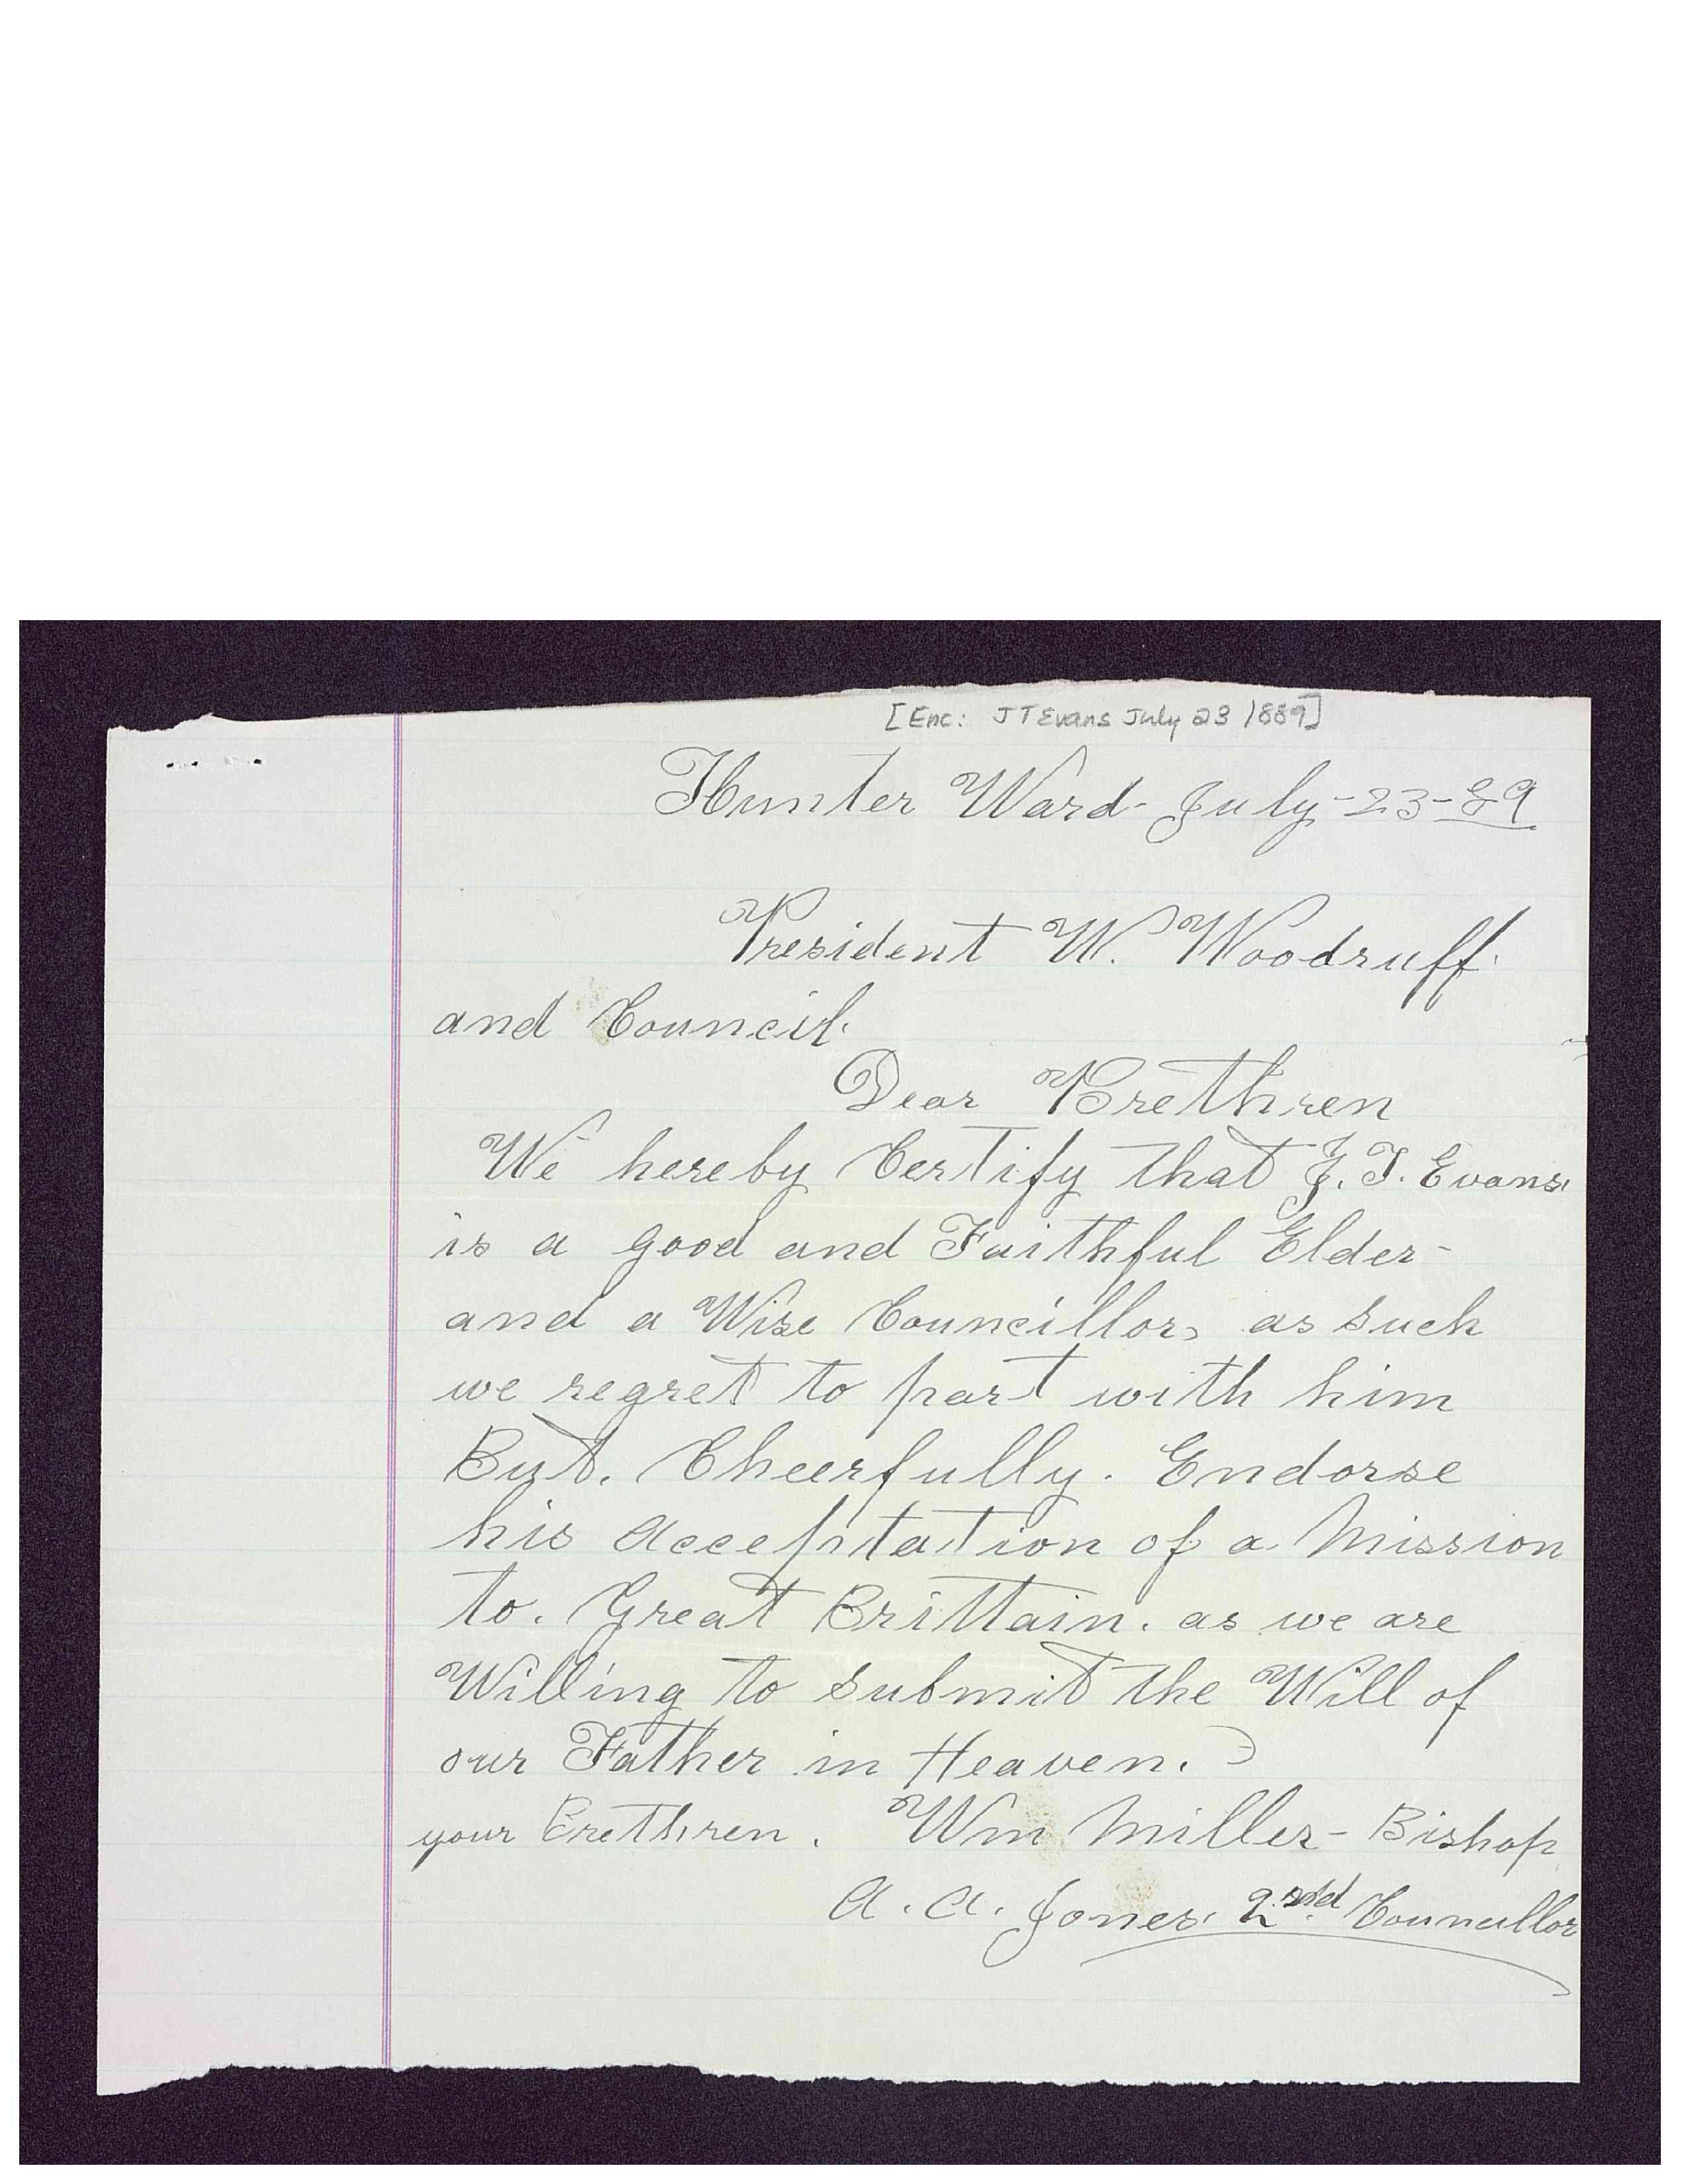 [Enc: J T Evans July 23 1889]
Hunter Ward - July - 23 - 89
President W. Woodruff.
and Council.
Dear Brethren
We hereby Certify that J. T. Evans,
is a good and Faithful Elder -
and a Wise Councillor, as such
we regret to part with him
But. Cheerfully. Endorse
his Acceptation of a Mission
to. Great Brittain. as we are
Willing to submit the Will of
our Father in Heaven.
your Brethren. Wm Miller - Bishop
A. A. Jones. 2nd Councillor